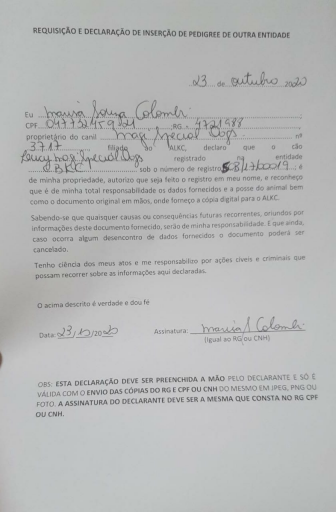 REQUISIÇÃO E DECLARAÇÃO DE INSERÇÃO DE PEDIGREE DE OUTRA ENTIDADE
23 de outubro 2020
Eu Souza Colombi
CPF RG 4721988
proprietário do canil Special Dogs nº
3717 filiado ao ALKC, declaro que o cão
Special Dogs registrado na entidade
sob o número de registro é
de minha propriedade, autorizo que seja feito o registro em meu nome, e reconheço
que é de minha total responsabilidade os dados fornecidos e a posse do animal bem
como o documento original em mãos, onde forneço a cópia digital para o ALKC.
Sabendo-se que quaisquer causas ou consequências futuras recorrentes, oriundos por
informações deste documento fornecido, serão de minha responsabilidade. E que ainda,
caso ocorra algum desencontro de dados fornecidos o documento poderá ser
cancelado.
Tenho ciência dos meus atos e me responsabilizo por ações cíveis e criminais que
possam recorrer sobre as informações aqui declaradas.
O acima descrito é verdade e dou fé
Data: 23/10/2020 Assinatura: S Colombi
(Igual ao RG ou CNH)
OBS: ESTA DECLARAÇÃO DEVE SER PREENCHIDA A MÃO PELO DECLARANTE E SÓ É
VÁLIDA COM O ENVIO DAS CÓPIAS DO RG E CPF OU CNH DO MESMO EM JPEG, PNG OU
FOTO. A ASSINATURA DO DECLARANTE DEVE SER A MESMA QUE CONSTA NO RG CPF
OU CNH.